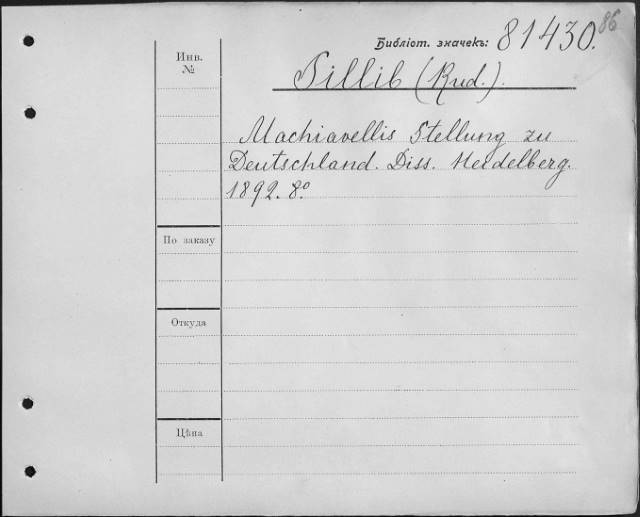 86
Библіот. значекъ: 81430.
Инв. №
Zillib (Rud.).
Machiavellis Stellung zu
Deutschland. Diss. Heidelberg.
1892. 8º
По заказу
Откуда
Цѣна